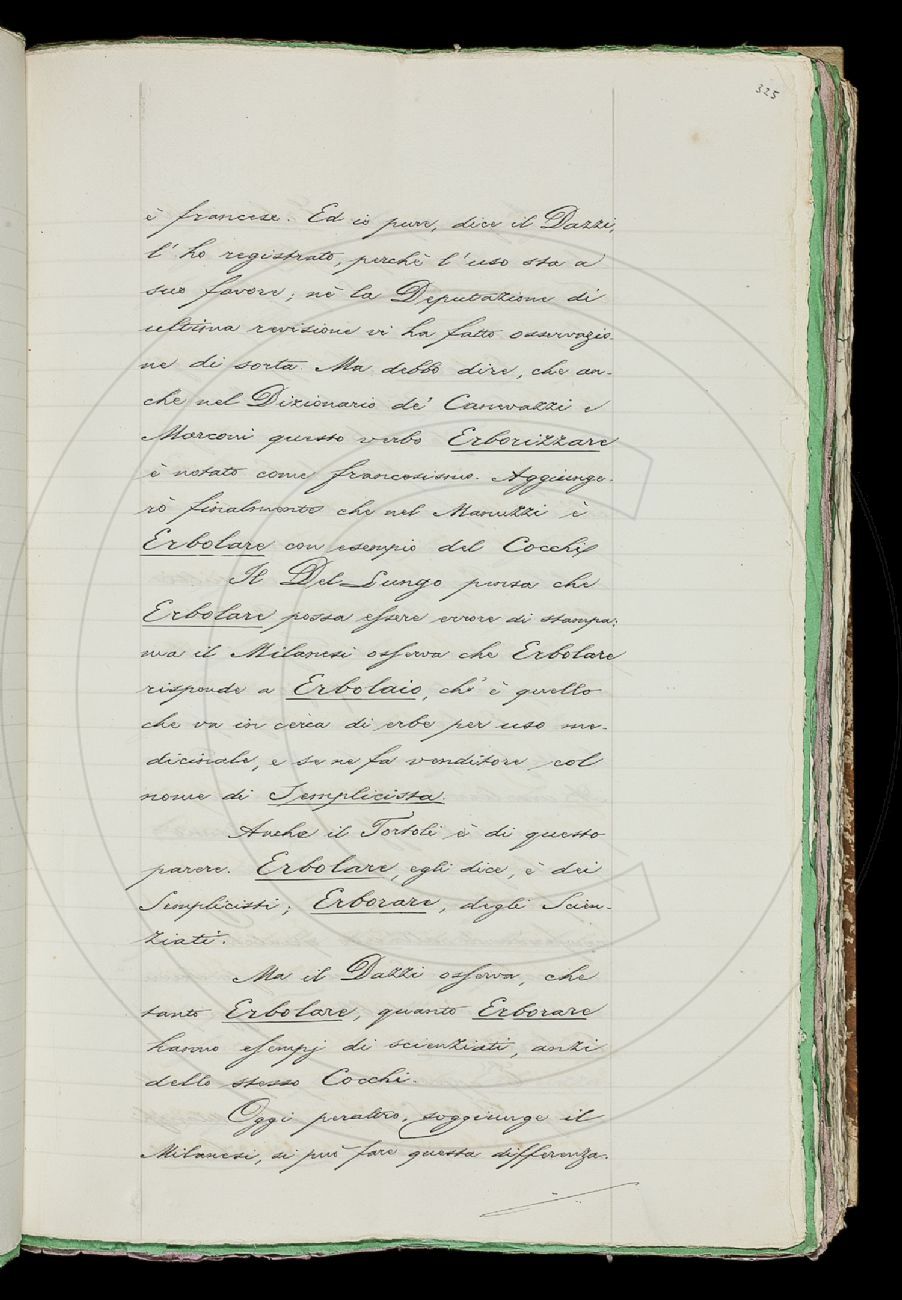 325
è francese. Ed io pure, dice il Dazzi,
l'ho registrato, perchè l'uso sta a
suo favore; nè la Deputazione di
ultima revisione vi ha fatto osservazio
ne di sorta. Ma debbo dire, che an-
che nel Dizionario de' Canevazzi e
Marconi questo verbo Erborizzare
è notato come francesismo. Aggiunge-
rò finalmente che nel Manuzzi è
Erbolare con esempio del Cocchi
Il Del-Lungo pensa che
Erbolare possa essere errore di stampa:
ma il Milanesi osserva che Erbolare
risponde a Erbolaio, ch'è quello
che va in cerca di erbe per uso me-
dicinale, e se ne fa venditore col
nome di Semplicista.
Anche il Tortoli è di questo
parere. Erbolare, egli dice, è dei
Semplicisti; Erborare, degli Scien-
ziati.
Ma il Dazzi osserva, che
tanto Erbolare, quanto Erborare
hanno esempj di scienziati, anzi
dello stesso Cocchi.
Oggi peraltro, soggiunge il
Milanesi, si può fare questa differenza.